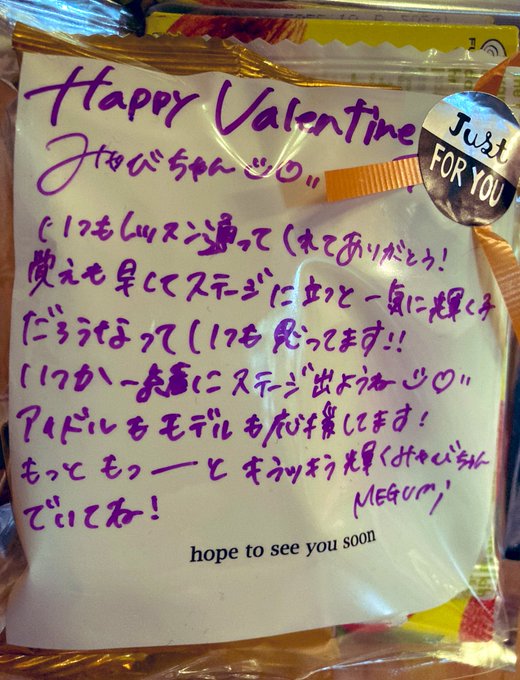 Happy Valentine
みやびちゃん
Just
FOR YOU
いつもレッスン通ってくれてありがとう!
覚えも早くてステージに立つと一気に輝く子
だろうなっていつも思ってます!!
いつか一緒にステージ出ようね
アイドルもモデルも応援してます!
もっともっーとキラッキラ輝くみやびちゃん
でいてね!
MEGUMi
hope to see you soon